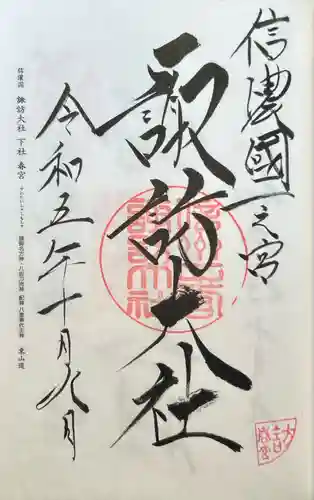 信濃國一之宮
諏訪大社
令和五年十月九日
信濃国 諏訪大社 下社 春宮
東山道